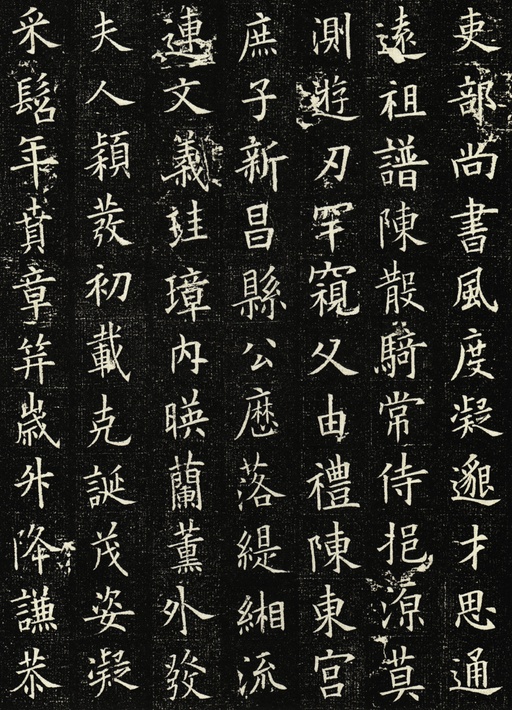 吏部尚書風度凝邈才思通
遠祖譜陳散騎常侍挹源莫
測遊刃罕窺父由禮陳東宮
庶子新昌縣公磿落緹緗流
連文義珪璋內暎蘭薰外發
夫人穎發初載克誕茂姿凝
采髫年蕡章笄歲外降謙恭